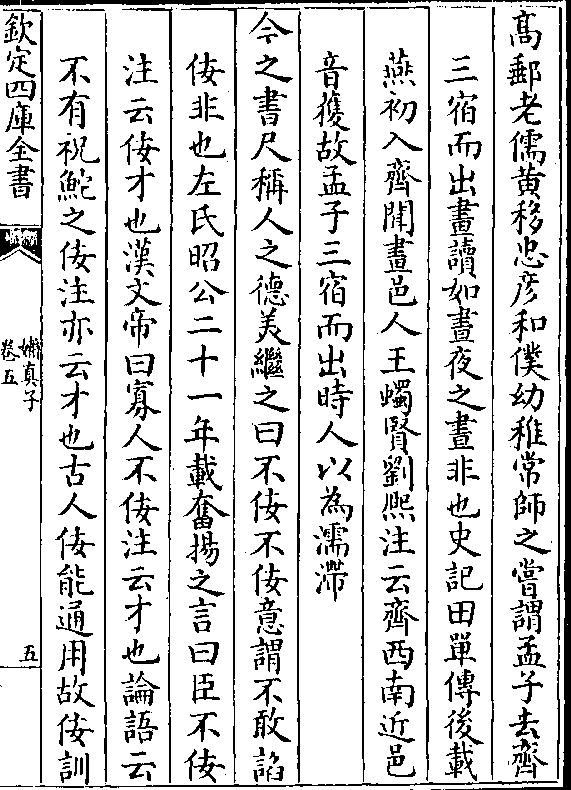 髙郵老儒黄移忠彦和僕幼稚常師之嘗謂孟子去齊
三宿而出晝讀如晝夜之晝非也史記田單傳後載
燕初入齊聞畫邑人王蠋賢劉熈注云齊西南近邑
音獲故孟子三宿而出時人以為濡滯
今之書尺稱人之德美繼之曰不佞不佞意謂不敢諂
佞非也左氏昭公二十一年載奮揚之言曰臣不佞
注云佞才也漢文帝曰寡人不佞注云才也論語云
不有祝鮀之佞注亦云才也古人佞能通用故佞訓
欽定四庫全書
嬾真子
卷五
五